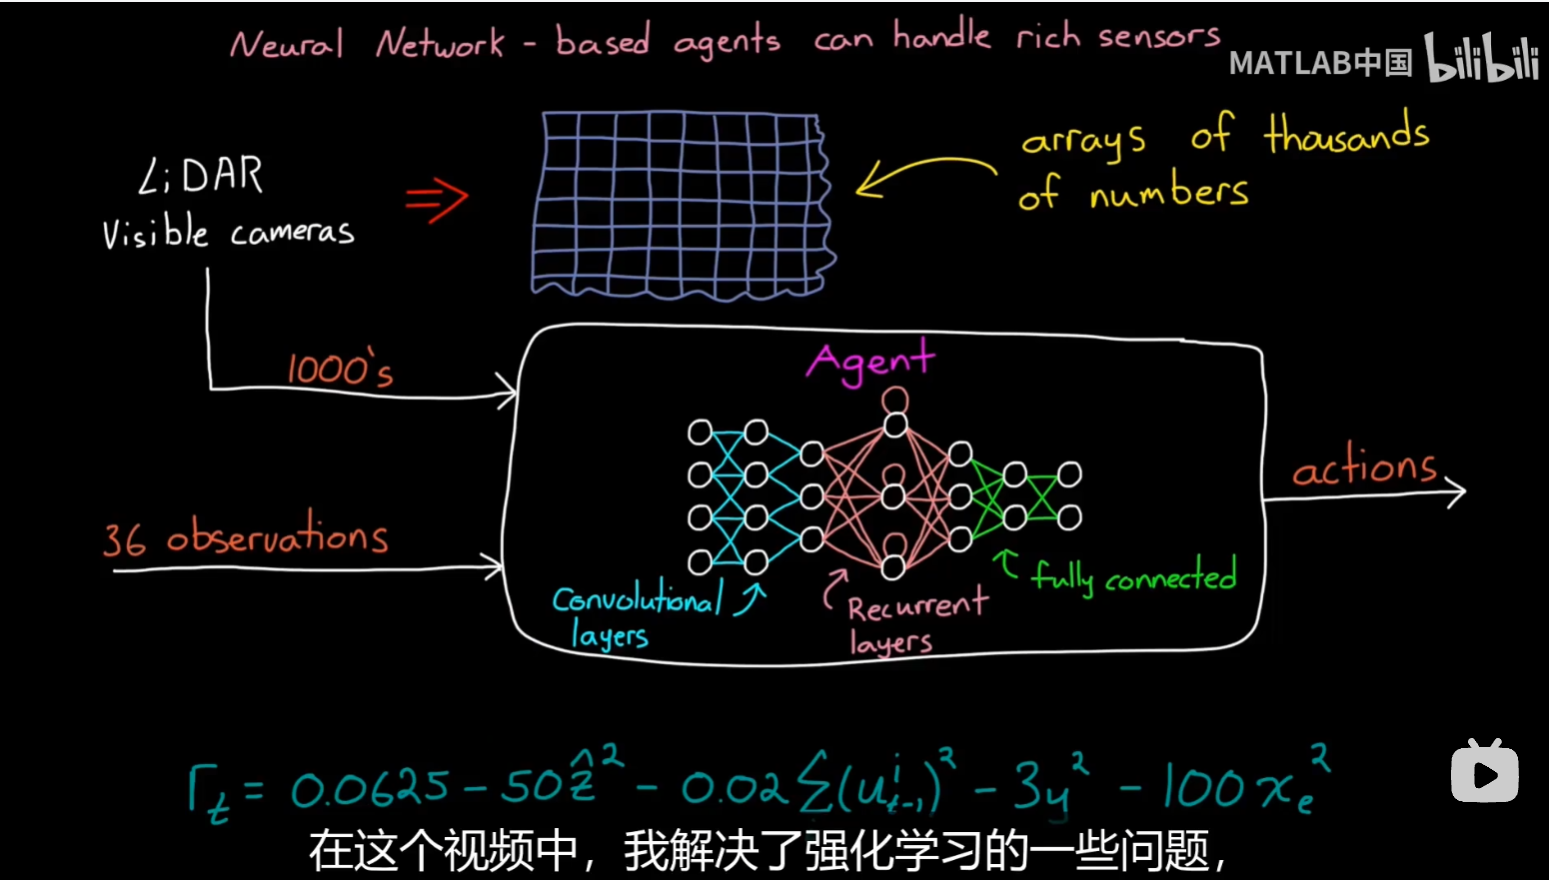 Neural Network - based agents can handle rich sensors
MATLAB中国 bilibili
LiDAR
Visible cameras
arrays of thousands
of numbers
1000's
Agent
36 observations
actions
Convolutional
layers
Recurrent
layers
fully connected
r_t = 0.0625 - 50ẑ² - 0.02 Σ(u^i_{t-1})² - 3y² - 100x_e²
在这个视频中，我解决了强化学习的一些问题，